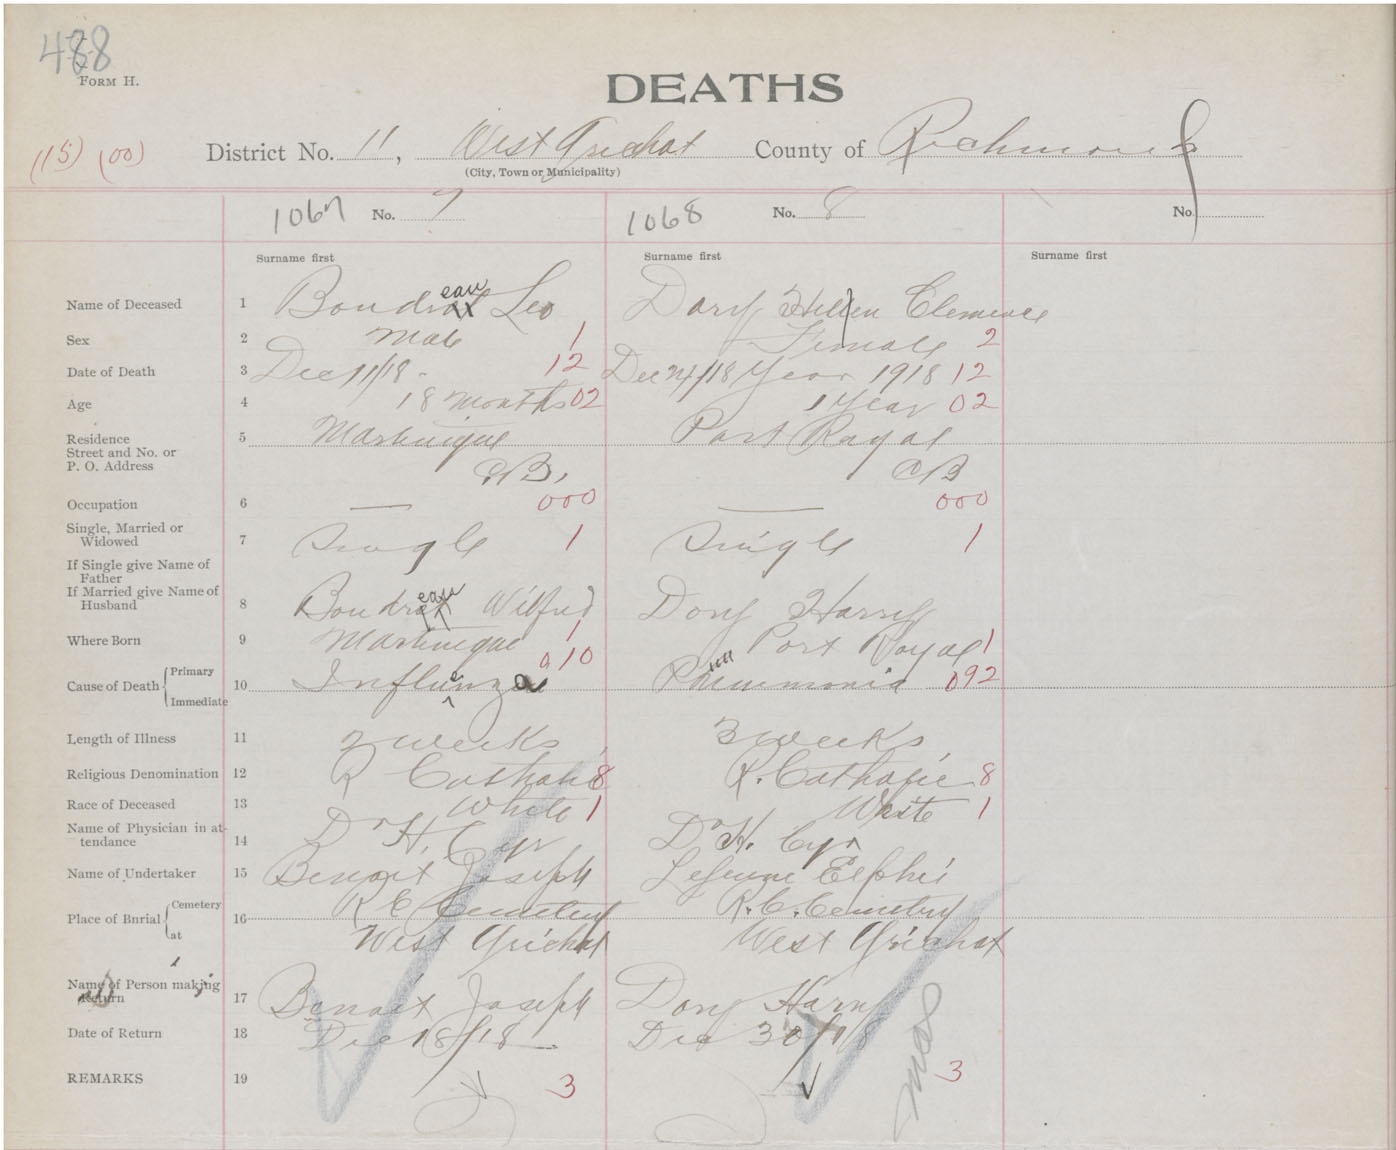 488
FORM H.
DEATHS
(15) (00)
District No. 11, West Arichat County of Richmond
(City, Town or Municipality)
1067 No. 7 1068 No. 8 No.
Surname first Surname first Surname first
Name of Deceased 1 Boudreau Leo Dory Hellen Clemence
Sex 2 Male 1 Female 2
Date of Death 3 Dec 11/18 - 12 Dec 24/18 Year 1918 12
Age 4 18 months 02 1 Year 02
Residence
Street and No. or
P. O. Address
5 Martinique Port Royal
C.B. CB
Occupation 6 — 000 — 000
Single, Married or
Widowed
7 Single 1 Single 1
If Single give Name of
Father
If Married give Name of
Husband
8 Boudreau Wilfred Dory Harry
Where Born 9 Martinique 1 Port Royal 1
Cause of Death { Primary
Immediate
10 Influenza 010 Pneumonia 092
Length of Illness 11 2 weeks 3 weeks
Religious Denomination 12 R Catholic 8 R. Catholic 8
Race of Deceased 13 White 1 White 1
Name of Physician in at-
tendance
14 Dr H. Cyr Dr H. Cyr
Name of Undertaker 15 Benoit Joseph Lejeune Elphie
Place of Burial { Cemetery
at
16 R C Cemetery R. C. Cemetery
West Arichat West Arichat
Name of Person making
Return
17 Benoit Joseph Dory Harry
Date of Return 18 Dec 18/18 Dec 30/18
REMARKS 19 3 3